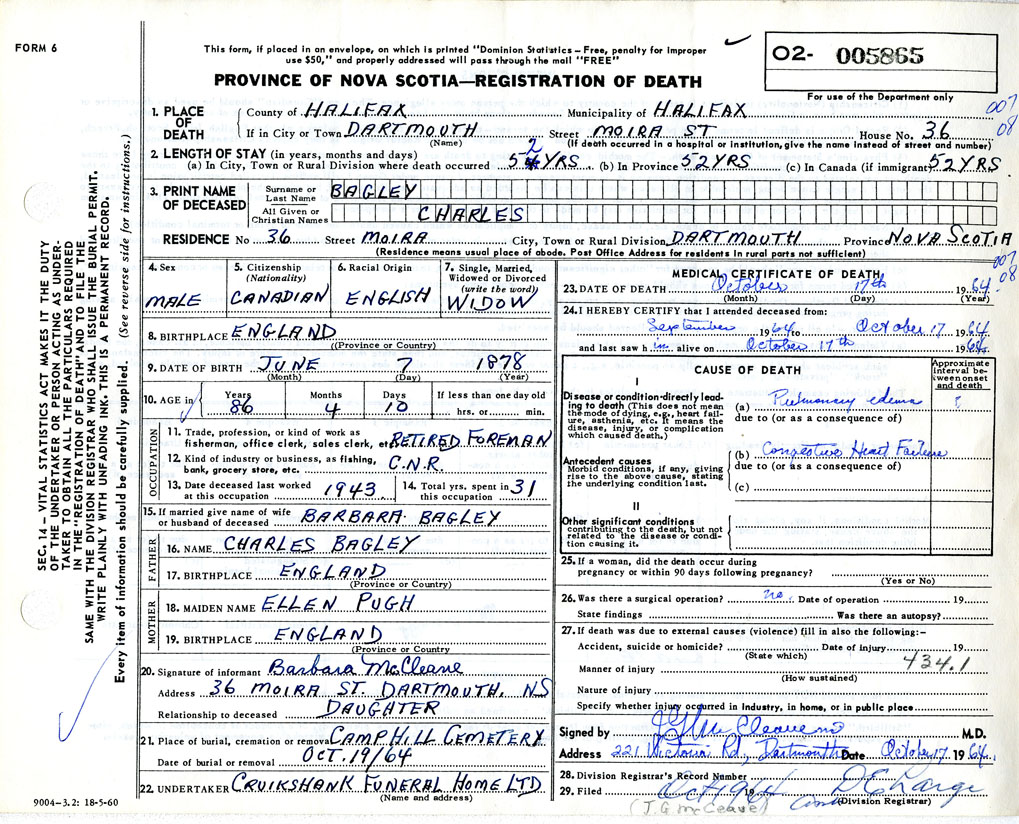 FORM 6
This form, if placed in an envelope, on which is printed "Dominion Statistics – Free, penalty for improper
use $50," and properly addressed will pass through the mail "FREE"
02- 005865
For use of the Department only
PROVINCE OF NOVA SCOTIA—REGISTRATION OF DEATH
007
08
1. PLACE OF DEATH
County of HALIFAX Municipality of HALIFAX
If in City or Town DARTMOUTH Street MOIRA ST House No. 36
(Name) (If death occurred in a hospital or institution, give the name instead of street and number)
2. LENGTH OF STAY (in years, months and days)
(a) In City, Town or Rural Division where death occurred 52 YRS (b) In Province 52 YRS (c) In Canada (if immigrant) 52 YRS
3. PRINT NAME OF DECEASED
Surname or Last Name BAGLEY
All Given or Christian Names CHARLES
RESIDENCE No 36 Street MOIRA City, Town or Rural Division DARTMOUTH Province NOVA SCOTIA
(Residence means usual place of abode. Post Office Address for residents in rural parts not sufficient)
007
08
4. Sex MALE
5. Citizenship (Nationality) CANADIAN
6. Racial Origin ENGLISH
7. Single, Married, Widowed or Divorced (write the word) WIDOW
8. BIRTHPLACE ENGLAND
(Province or Country)
9. DATE OF BIRTH JUNE 7 1878
(Month) (Day) (Year)
10. AGE in Years 86 Months 4 Days 10 If less than one day old hrs. or min.
OCCUPATION
11. Trade, profession, or kind of work as
fisherman, office clerk, sales clerk, etc. RETIRED FOREMAN
12. Kind of industry or business, as fishing,
bank, grocery store, etc. C.N.R.
13. Date deceased last worked at this occupation 1943
14. Total yrs. spent in this occupation 31
15. If married give name of wife
or husband of deceased BARBARA BAGLEY
FATHER
16. NAME CHARLES BAGLEY
17. BIRTHPLACE ENGLAND
(Province or Country)
MOTHER
18. MAIDEN NAME ELLEN PUGH
19. BIRTHPLACE ENGLAND
(Province or Country)
20. Signature of informant Barbara McCleave
Address 36 MOIRA ST. DARTMOUTH. NS
Relationship to deceased DAUGHTER
21. Place of burial, cremation or removal CAMP HILL CEMETERY
Date of burial or removal OCT. 19/64
22. UNDERTAKER CRUIKSHANK FUNERAL HOME LTD
(Name and address)
MEDICAL CERTIFICATE OF DEATH
23. DATE OF DEATH October 17th 1964.
(Month) (Day) (Year)
24. I HEREBY CERTIFY that I attended deceased from:
September 1964 to October 17 1964
and last saw him alive on October 17th 1964.
CAUSE OF DEATH
Approximate interval between onset and death
I
Disease or condition directly leading to death (This does not mean the mode of dying, e.g., heart failure, asthenia, etc. It means the disease, injury, or complication which caused death.)
(a) Pulmonary edema ?
due to (or as a consequence of)
Antecedent causes
Morbid conditions, if any, giving rise to the above cause, stating the underlying condition last.
(b) Congestive Heart Failure
due to (or as a consequence of)
(c)
II
Other significant conditions
contributing to the death, but not related to the disease or condition causing it.
25. If a woman, did the death occur during
pregnancy or within 90 days following pregnancy?
(Yes or No)
26. Was there a surgical operation? no. Date of operation 19
State findings Was there an autopsy?
27. If death was due to external causes (violence) fill in also the following:–
Accident, suicide or homicide? Date of injury 19
(State which)
434.1
Manner of injury
(How sustained)
Nature of injury
Specify whether injury occurred in industry, in home, or in public place
Signed by M.D.
Address 221 Victoria Rd., Dartmouth Date October 17 1964.
28. Division Registrar's Record Number
29. Filed Oct 19 1964
(J. G McCleave)
(Division Registrar)
9004–3.2: 18-5-60
SEC. 14 – VITAL STATISTICS ACT MAKES IT THE DUTY
OF THE UNDERTAKER OR PERSON ACTING AS UNDER-
TAKER TO OBTAIN ALL THE PARTICULARS REQUIRED
IN THE "REGISTRATION OF DEATH" AND TO FILE THE
SAME WITH THE DIVISION REGISTRAR WHO SHALL ISSUE THE BURIAL PERMIT.
WRITE PLAINLY WITH UNFADING INK. THIS IS A PERMANENT RECORD.
Every item of information should be carefully supplied. (See reverse side for instructions.)